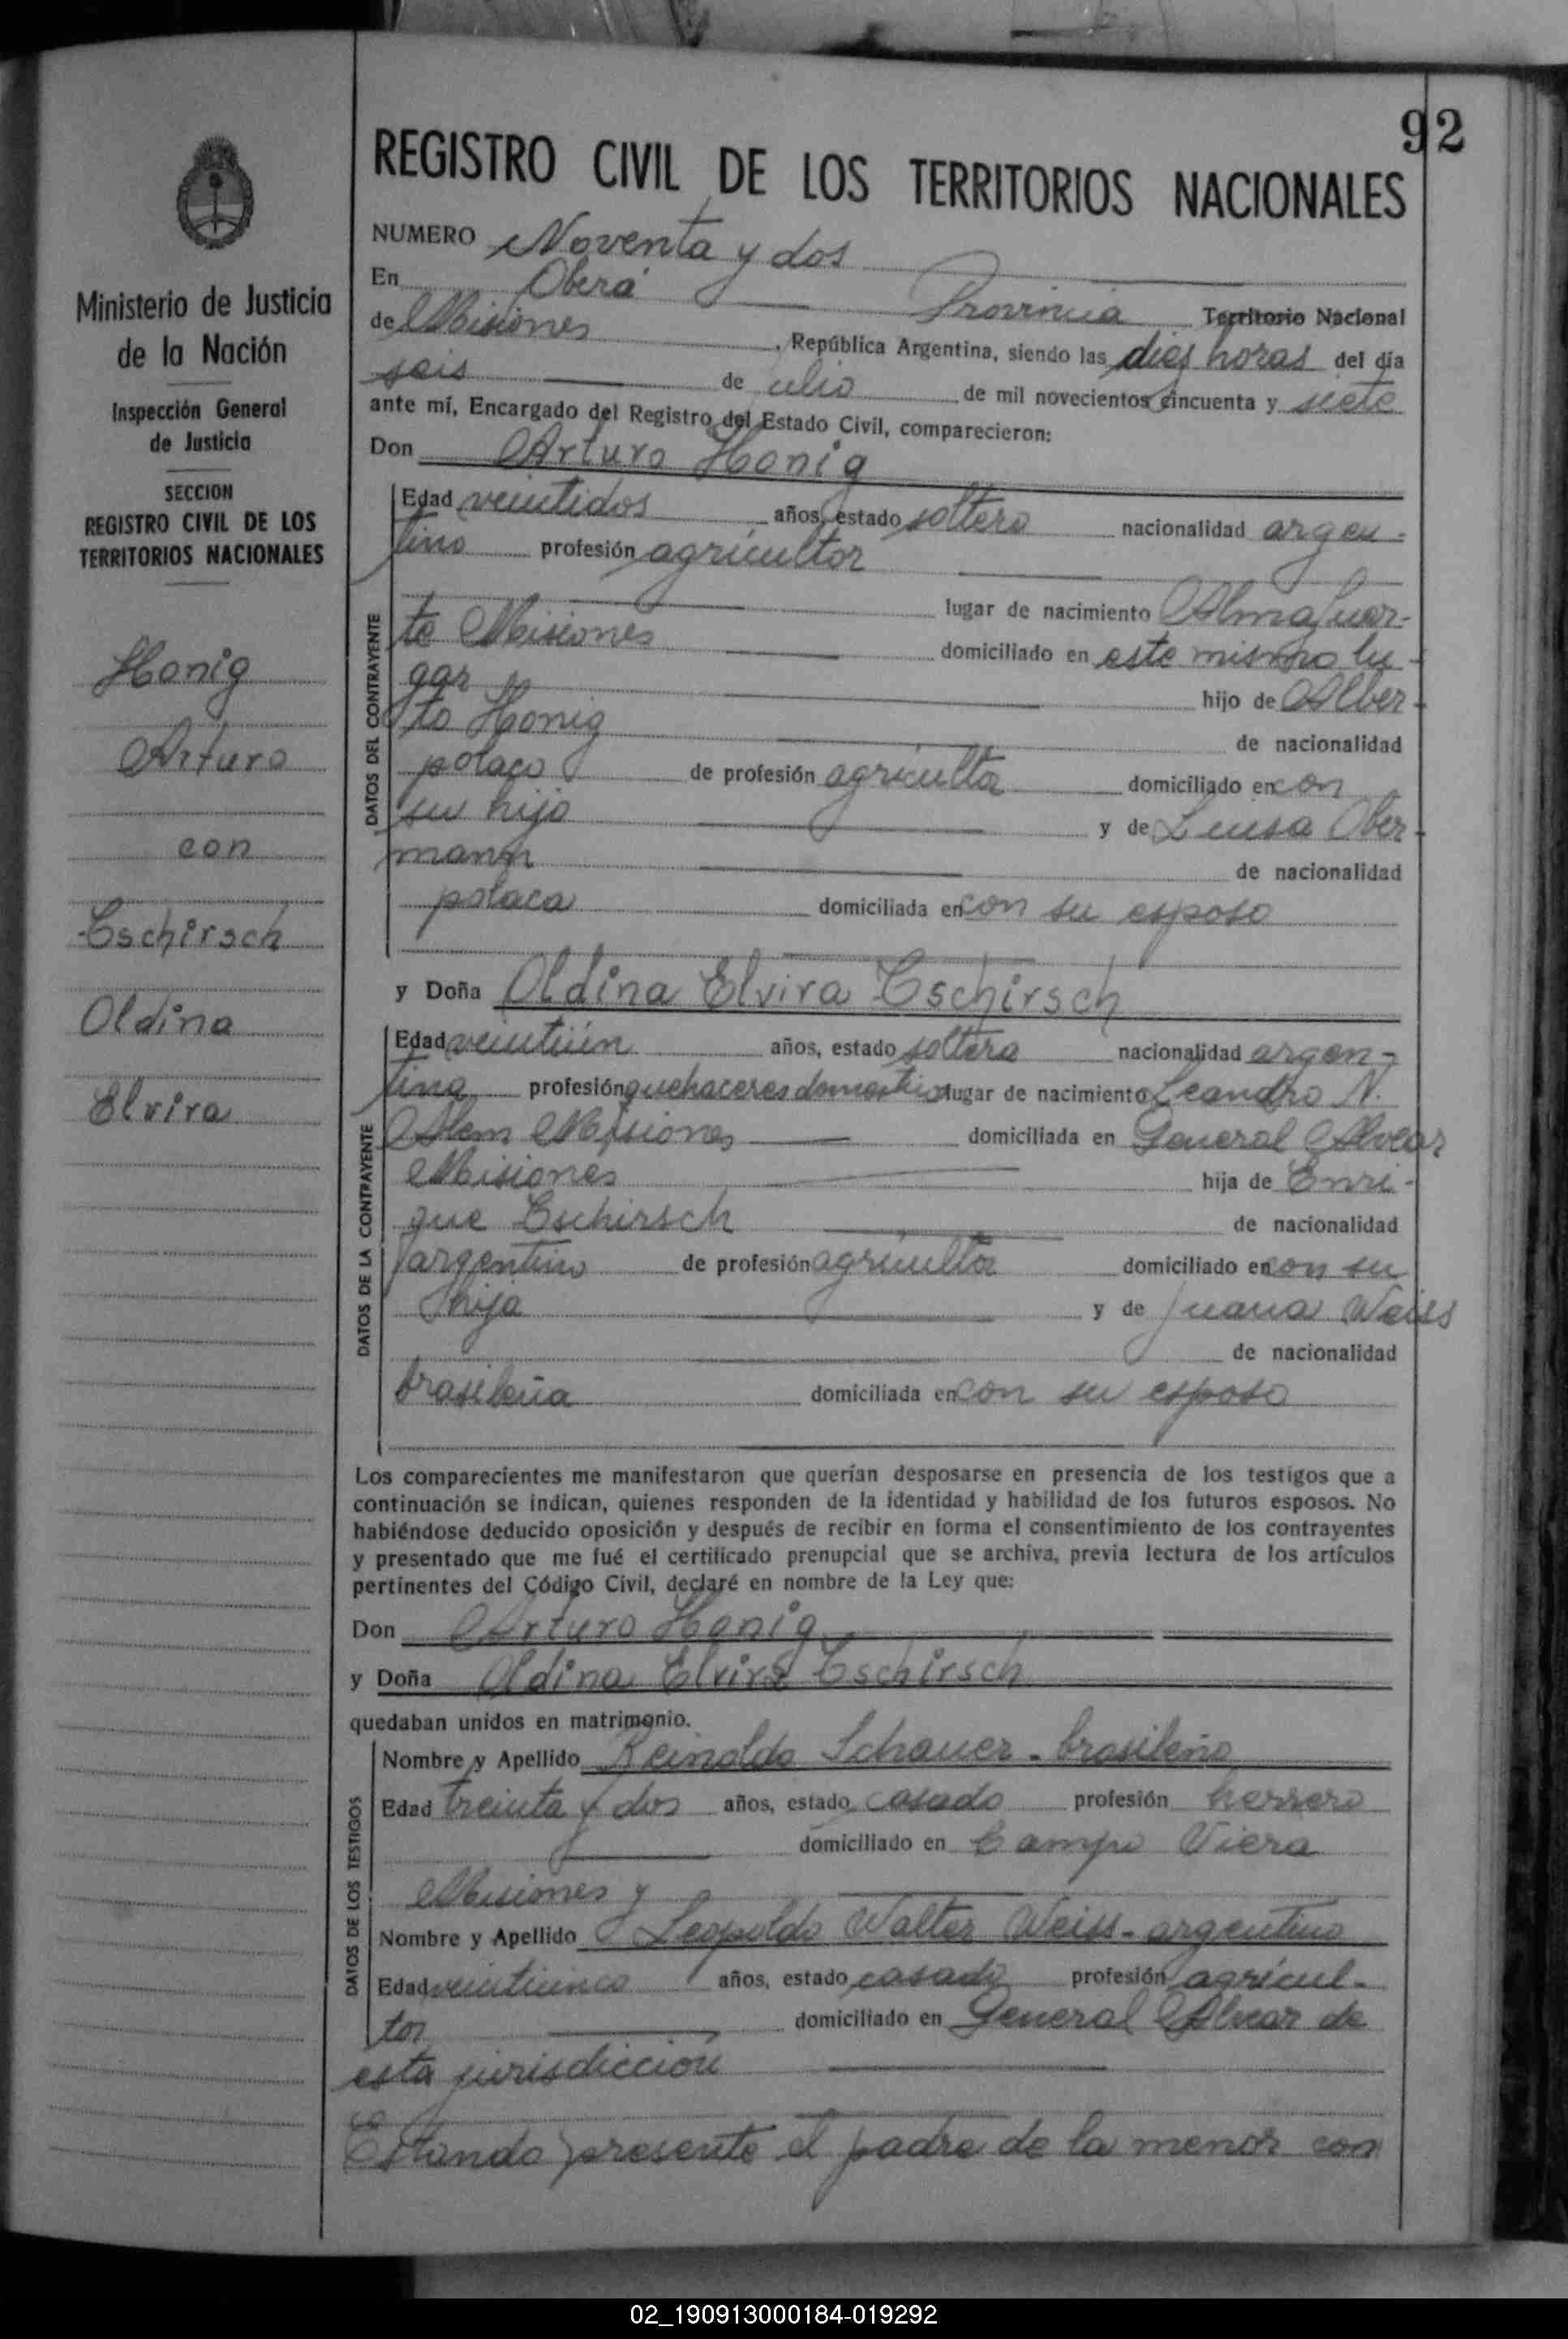 92
REGISTRO CIVIL DE LOS TERRITORIOS NACIONALES
Ministerio de Justicia
de la Nación
Inspección General
de Justicia
SECCION
REGISTRO CIVIL DE LOS
TERRITORIOS NACIONALES
Honig
Arturo
con
Tschirsch
Oldina
Elvira
NUMERO Noventa y dos
En Oberá Provincia Territorio Nacional
de Misiones , República Argentina, siendo las diez horas del día
seis de julio de mil novecientos cincuenta y siete
ante mí, Encargado del Registro del Estado Civil, comparecieron:
Don Arturo Honig
DATOS DEL CONTRAYENTE
Edad veintidos años, estado soltero nacionalidad argen-
tino profesión agricultor
lugar de nacimiento Almafuer-
te Misiones domiciliado en este mismo lu-
gar hijo de Alber-
to Honig de nacionalidad
polaco de profesión agricultor domiciliado en con
su hijo y de Luisa Ober-
mann de nacionalidad
polaca domiciliada en con su esposo
y Doña Oldina Elvira Tschirsch
DATOS DE LA CONTRAYENTE
Edad veintiún años, estado soltera nacionalidad argen-
tina profesión quehaceres domestico lugar de nacimiento Leandro N.
Alem Misiones domiciliada en General Alvear
Misiones hija de Enri-
que Tschirsch de nacionalidad
argentino de profesión agricultor domiciliado en con su
hija y de Juana Weiss
de nacionalidad
brasileña domiciliada en con su esposo
Los comparecientes me manifestaron que querían desposarse en presencia de los testigos que a
continuación se indican, quienes responden de la identidad y habilidad de los futuros esposos. No
habiéndose deducido oposición y después de recibir en forma el consentimiento de los contrayentes
y presentado que me fué el certificado prenupcial que se archiva, previa lectura de los artículos
pertinentes del Código Civil, declaré en nombre de la Ley que:
Don Arturo Honig
y Doña Oldina Elvira Tschirsch
quedaban unidos en matrimonio.
DATOS DE LOS TESTIGOS
Nombre y Apellido Reinaldo Schauer - brasileño
Edad treinta y dos años, estado casado profesión herrero
domiciliado en Campo Viera
Misiones y
Nombre y Apellido Leopoldo Walter Weiss - argentino
Edad veinticinco años, estado casado profesión agricul-
tor domiciliado en General Alvear de
esta jurisdicción
Estando presente el padre de la menor con
02_190913000184-019292